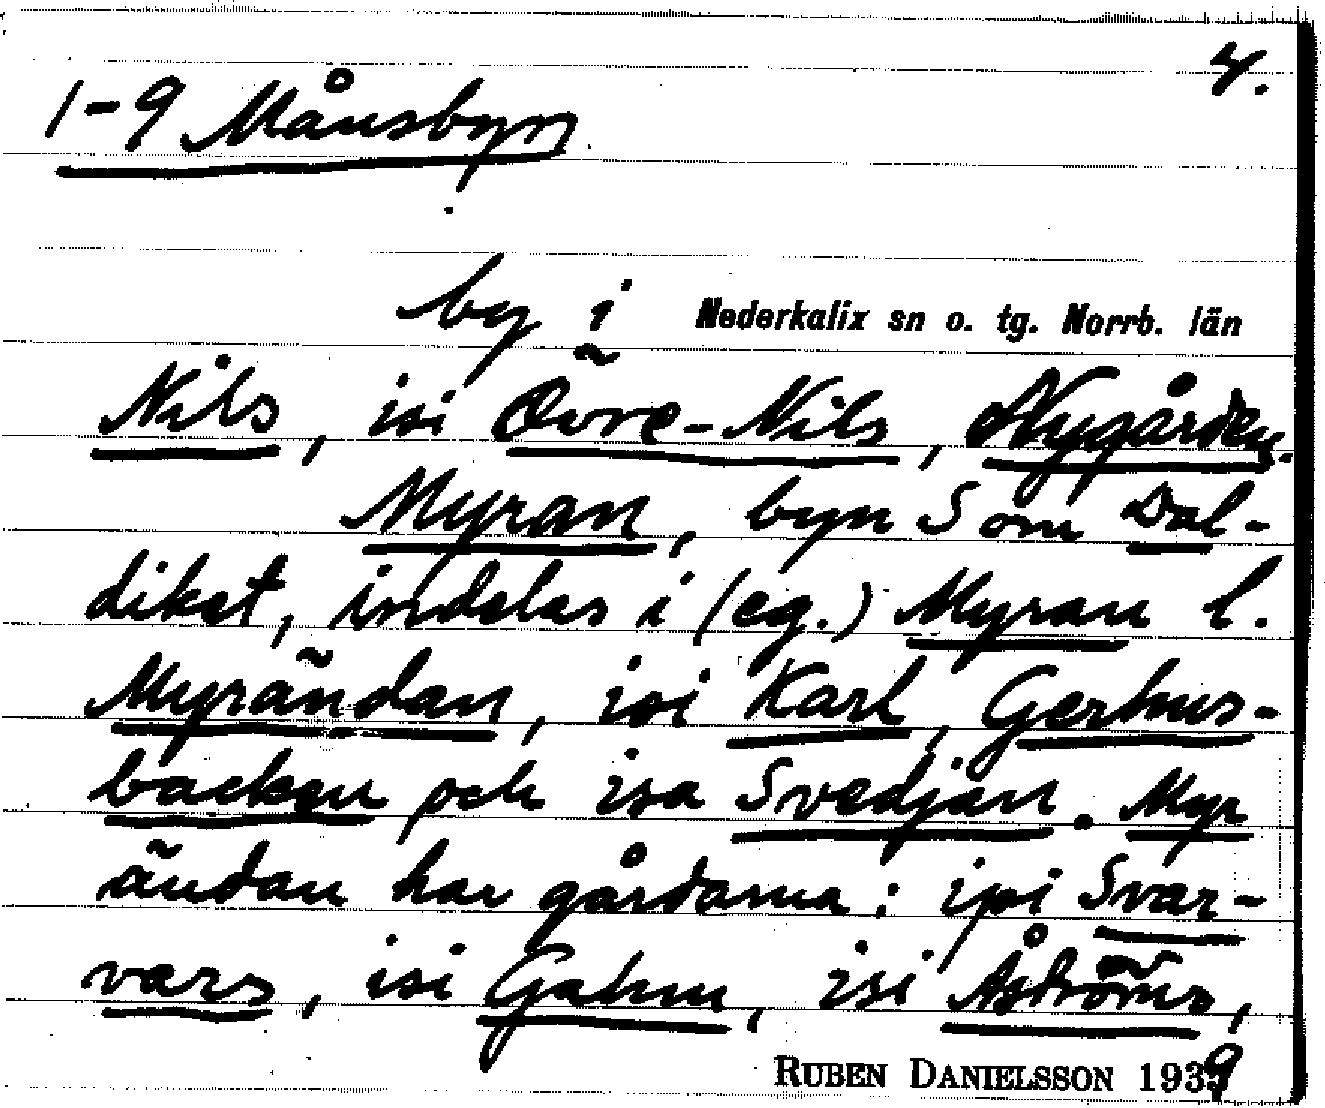 4.
1-9 Månsbyn
by i Nederkalix sn o. tg. Norrb. län
Nils, isi Övre-Nils, Nygården.
Myran, byn S om Dal-
diket, indelas i (eg.) Myran l.
Myrändan, isi Karl, Gerhus-
backen och isa Svedjan. Myr
ändan har gårdarna: ipi Svar-
vars, isi Gahm, isi Åströms,
RUBEN DANIELSSON 1939